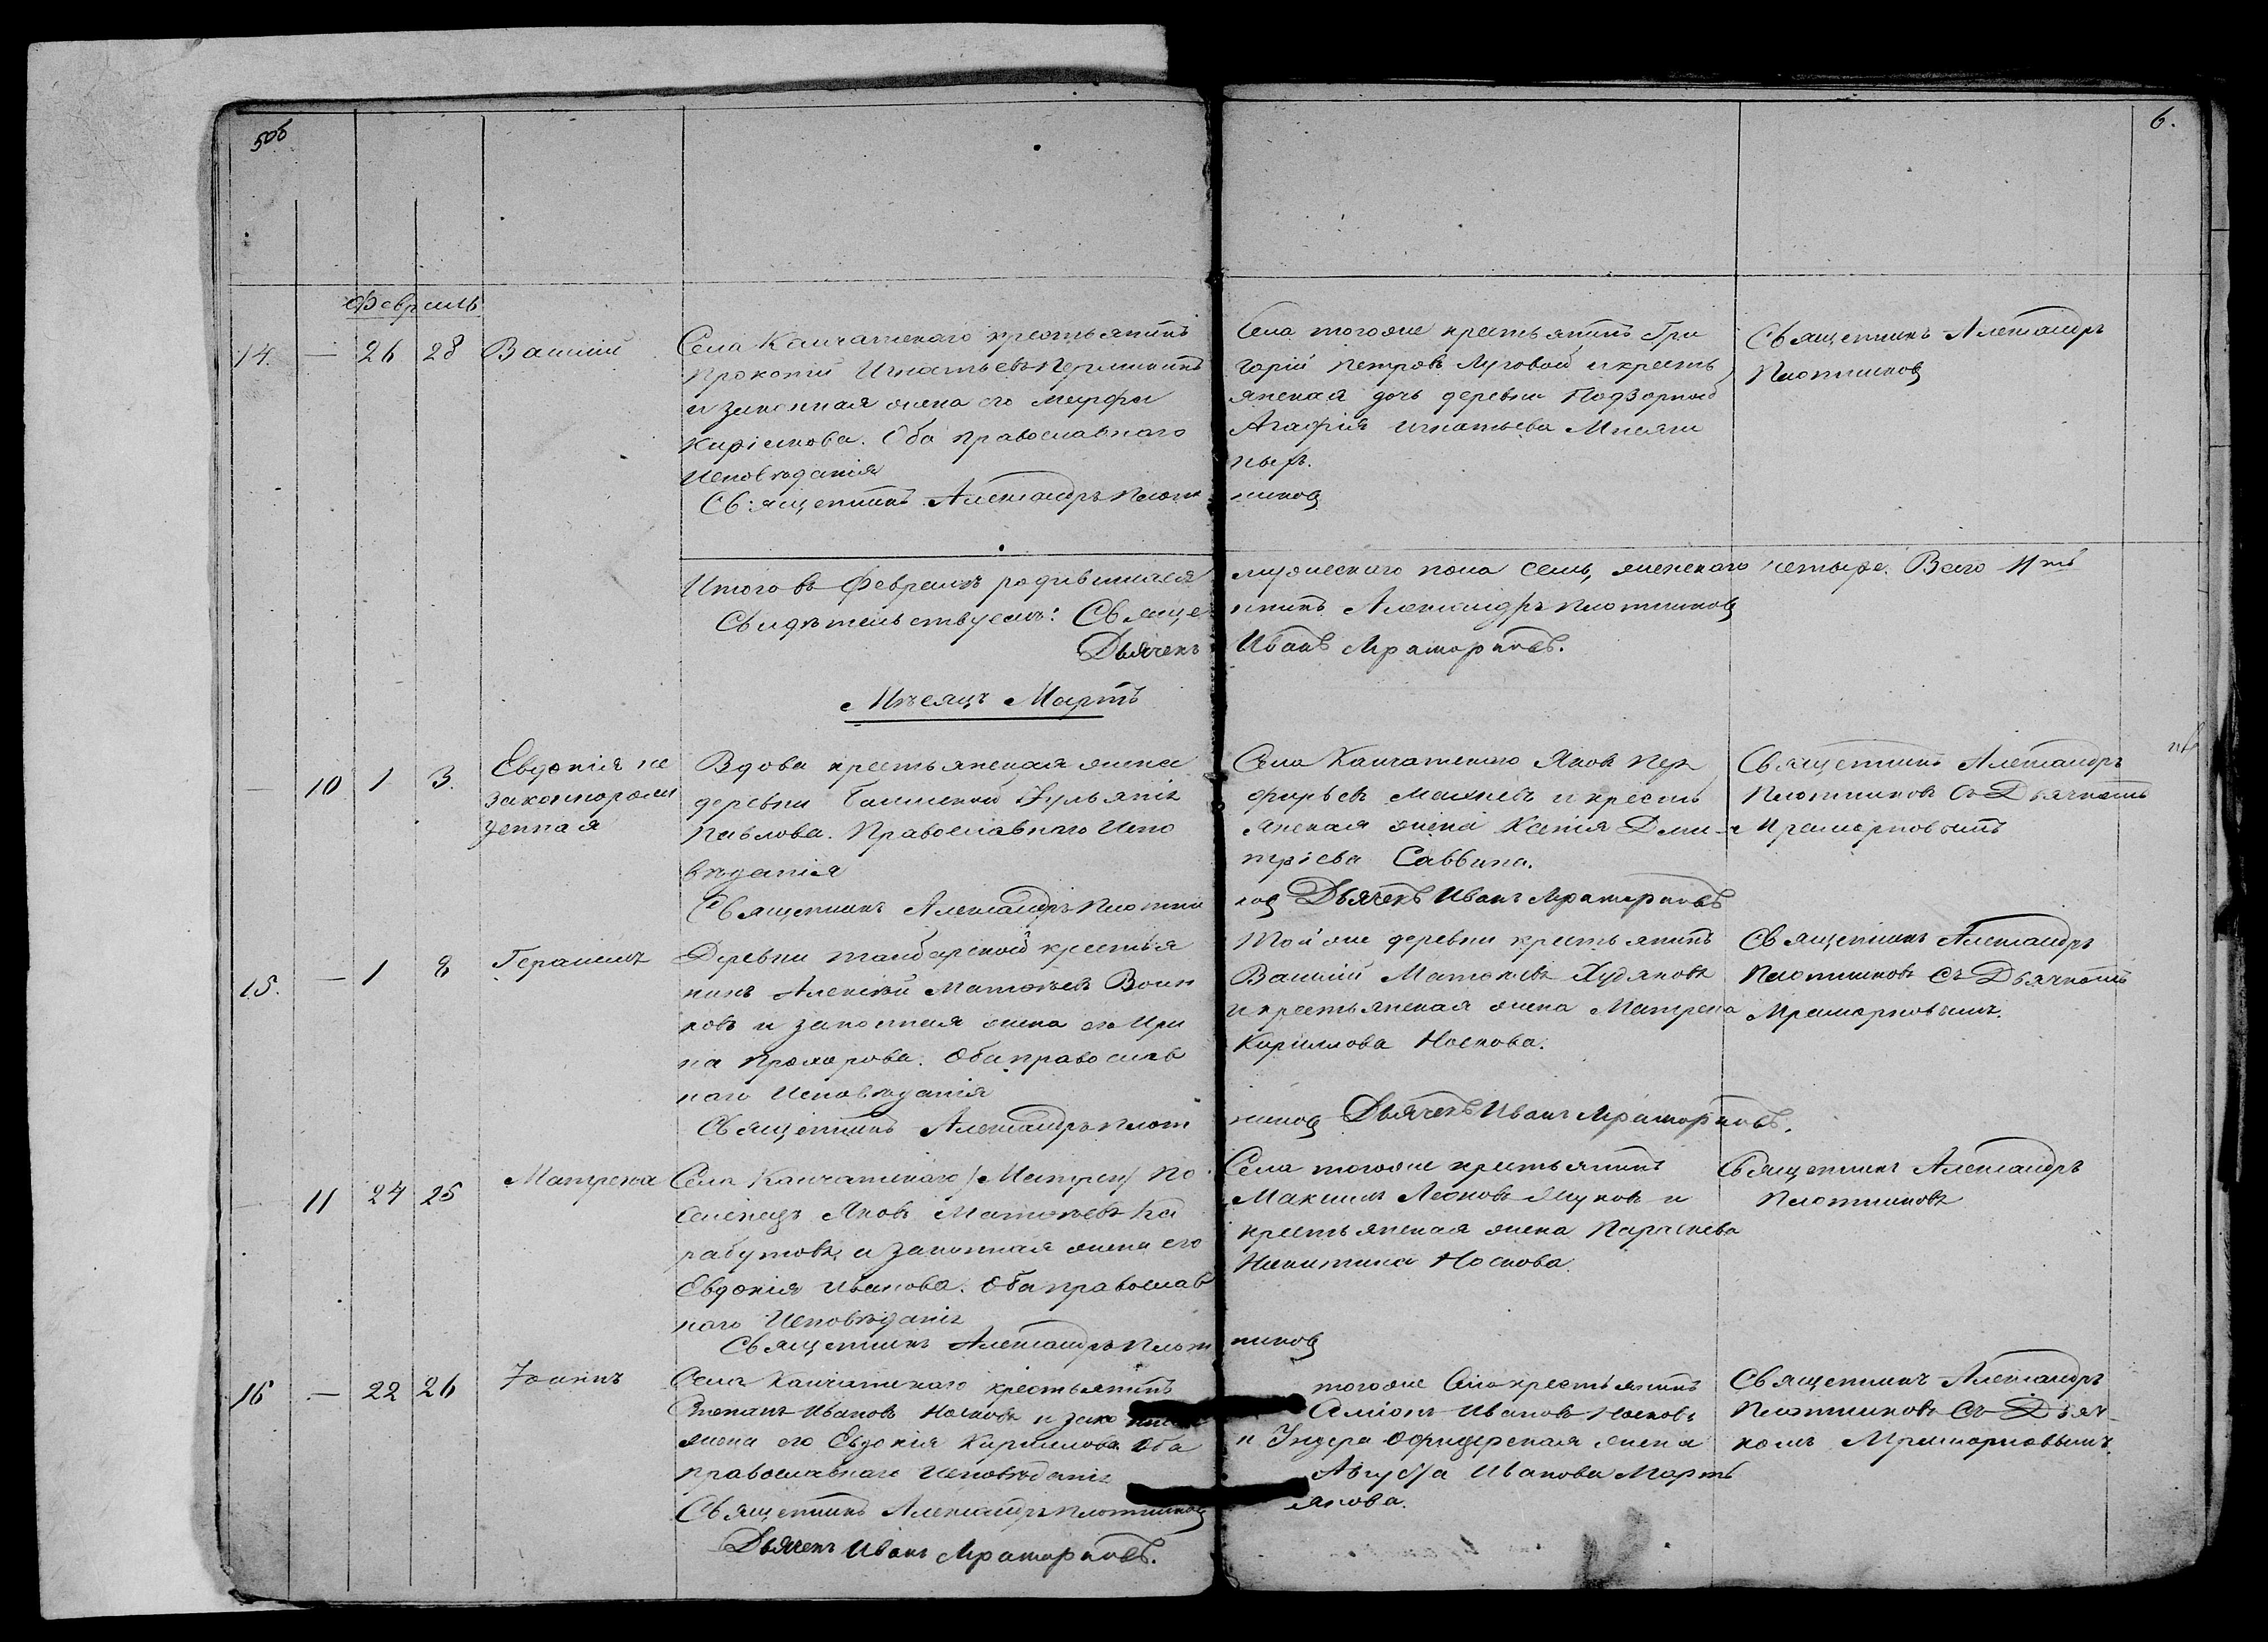 506
6.
Февраль
14. — 26 28 Василій
Села Камчатскаго крестьянинъ
Прокопій Игнатьевъ
и законная жена его Марфа
Кирилова. Оба православнаго
Исповѣданія
Священникъ Александръ Плот
Села тогоже крестьянинъ Гри
горій Петровъ Луговой и кресть
янская дочь деревни Подзорной
Агафія Игнатьева
ников
Священникъ Александръ
Плотников
Итого въ Февралѣ родившихся
мужескаго пола семь, женскаго четыре. Всего 11ть
Свидѣтельствуемъ: Свяще
нникъ Александръ Плотников
Дьячекъ
Иванъ Мраморновъ.
Мѣсяцъ Мартъ
— 10 1 3. Евдокія не
законнорож
денная
Вдова крестьянская жена
деревни
Павлова. Православнаго Испо
вѣданія
Священникъ Александръ Плотни
Села Камчатскаго Яковъ Пер
фирьевъ Махневъ и кресть
янская жена Ксенія Дми
тріева Саввина.
ков Дьячекъ Иванъ Мраморновъ
Священникъ Александръ
Плотниковъ съ Дьячкомъ
Мраморновымъ
15. — 1 8 Герасимъ
Деревни крестья
нинъ Алексѣй Матвѣевъ Воин
ковъ и законная жена его Ири
на Прохорова. Оба православ
наго Исповѣданія
Священникъ Александръ Плот
Той же деревни крестьянинъ
Василій Матвѣевъ Худяковъ
и крестьянская жена Матрена
Кириллова Носкова.
ников Дьячекъ Иванъ Мраморновъ.
Священникъ Александръ
Плотниковъ съ Дьячкомъ
Мраморновымъ.
— 11 24 25 Матрена
Села Камчатскаго /Матрен/ По
селенецъ Яковъ Матвѣевъ Ка
рабутовъ, и законная жена его
Евдокія Иванова. Оба православ
наго Исповѣданія
Священникъ Александръ Плот
Села тогоже крестьянинъ
Максимъ Леоновъ и
крестьянская жена Параскева
Никитина Носкова.
ников
Священникъ Александръ
Плотниковъ
16 — 22 26 Іоаннъ
Села Камчатскаго крестьянинъ
Степанъ Ивановъ Носковъ и зако
жена его Евдокія Кирилова. Оба
православнаго Исповѣданія
Священникъ Александръ Плотников
Дьячекъ Иванъ Мраморновъ.
тогоже Села крестьянинъ
Ивановъ Носковъ
и Ундеръ Офицерская жена
Августа Иванова Марть
янова.
Священникъ Александръ
Плотниковъ съ Дьяч
комъ Мраморновымъ.